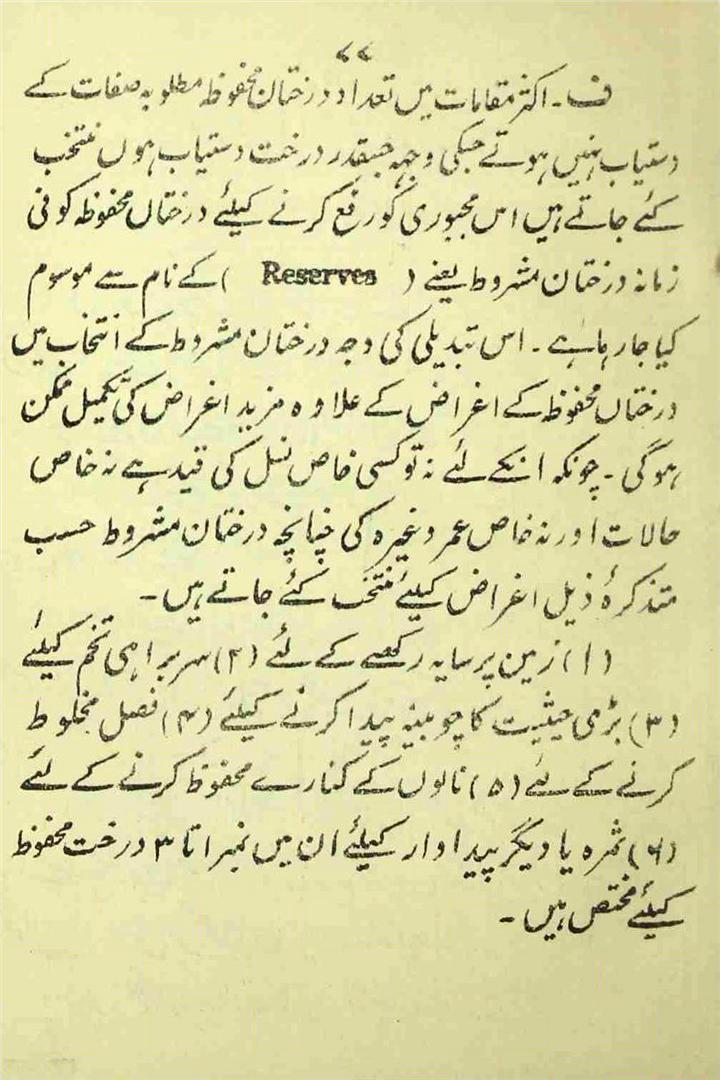 ۷۷
ف ۔ اکثر مقامات میں تعداد درختان محفوظ مطلوبہ صفات کے
دستیاب نہیں ہوتے جسکی وجہ جسقدر درخت دستیاب ہوں منتخب
کئے جاتے ہیں اس مجبوری کو رفع کرنے کیلئے درختان محفوظ کو فی
زمانہ درختان مشروط یعنے ( Reserves ) کے نام سے موسوم
کیا جا رہا ہے ۔ اس تبدیلی کی وجہ درختان مشروط کے انتخاب میں
درختاں محفوظ کے اغراض کے علاوہ مزید اغراض کی تکمیل ممکن
ہوگی ۔ چونکہ انکے لئے نہ تو کسی خاص نسل کی قید ہے نہ خاص
حالات اور نہ خاص عمر وغیرہ کی چنانچہ درختان مشروط حسب
متذکرۂ ذیل اغراض کیلئے منتخب کئے جاتے ہیں ۔
(۱) زمین پر سایہ رکھنے کے لئے (۲) سربراہی تخم کیلئے
(۳) بڑی حیثیت کا چوبینہ پیدا کرنے کیلئے (۴) فصل مخلوط
کرنے کے لئے (۵) نالوں کے کنارے محفوظ کرنے کے لئے
(۶) ثمرہ یا دیگر پیداوار کیلئے ان میں نمبر ۱ تا ۳ درخت محفوظ
کیلئے مختص ہیں ۔